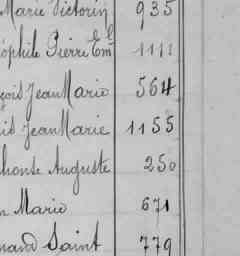 Marie Victorin 935
éophile Pierre Eml 1111
çois Jean Marie 564
is Jean Marie 1155
phonse Auguste 250
n Marie 671
nand Saint 779